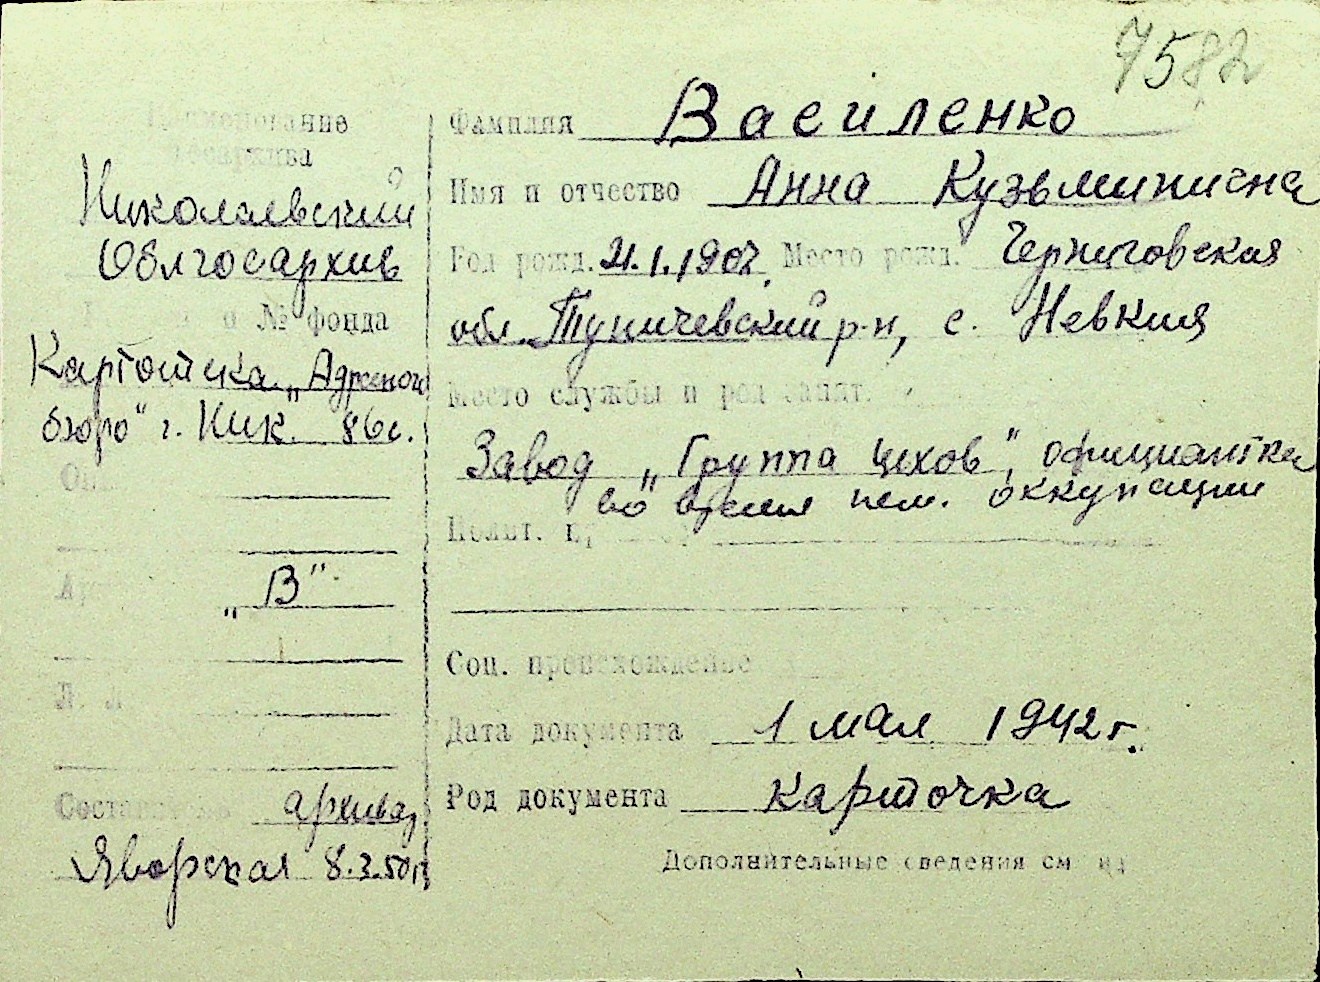 7582
Наименование
госархива
Николаевский
Облгосархив
№ фонда
Картотека „Адресного
бюро" г. Ник. 86с.
„В"
архивар
Яворская 8.3.50г.
Фамилия Василенко
Имя и отчество Анна Кузьминична
Год рожд. 21.1.1907. Место рожд. Черниговская
обл. Тупичевский р-н, с. Невкля
Место службы и род занят.
Завод „Группа цехов", официантка
во время нем. оккупации
Полит.
Соц. происхождение
Дата документа 1 мая 1942 г.
Род документа карточка
Дополнительные сведения см